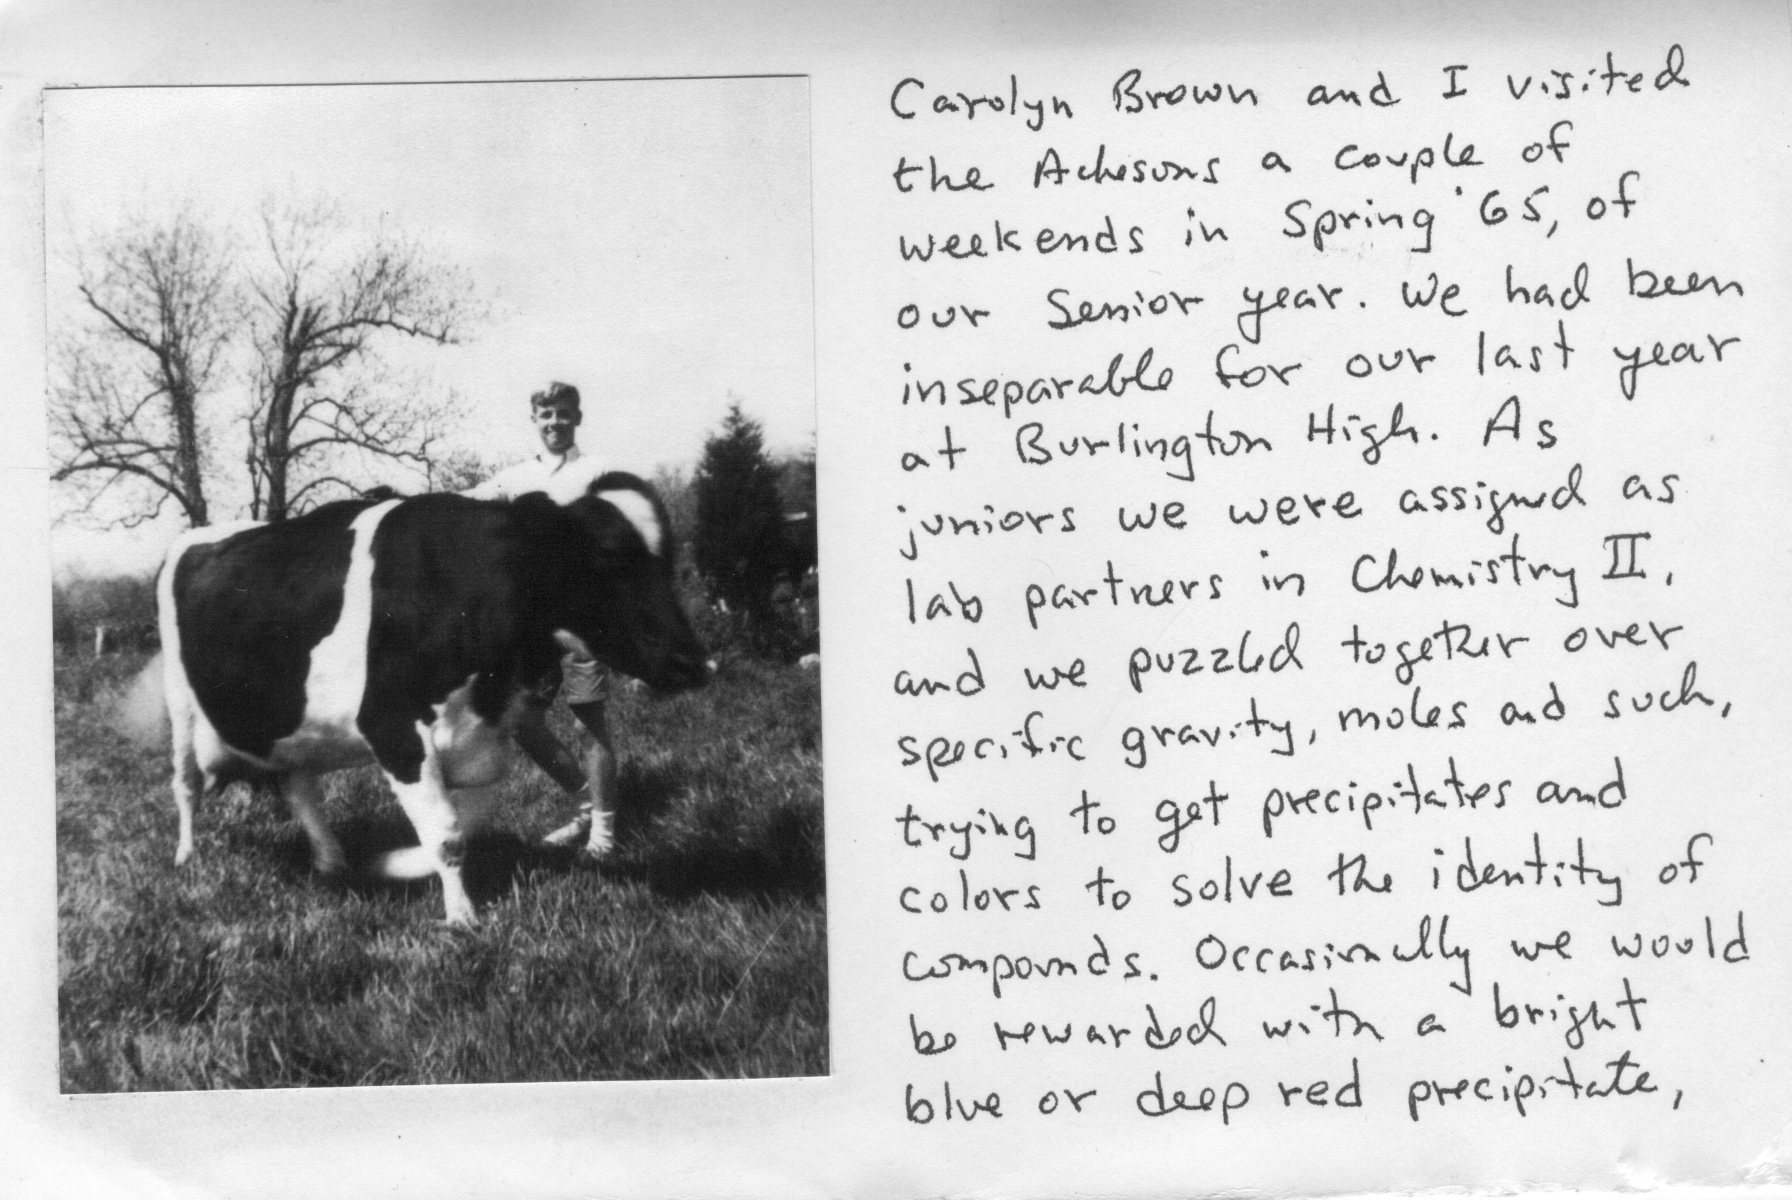 Carolyn Brown and I visited
the Achesons a couple of
weekends in Spring '65, of
our Senior year. We had been
inseparable for our last year
at Burlington High. As
juniors we were assigned as
lab partners in Chemistry II,
and we puzzled together over
specific gravity, moles and such,
trying to get precipitates and
colors to solve the identity of
compounds. Occasionally we would
be rewarded with a bright
blue or deep red precipitate,